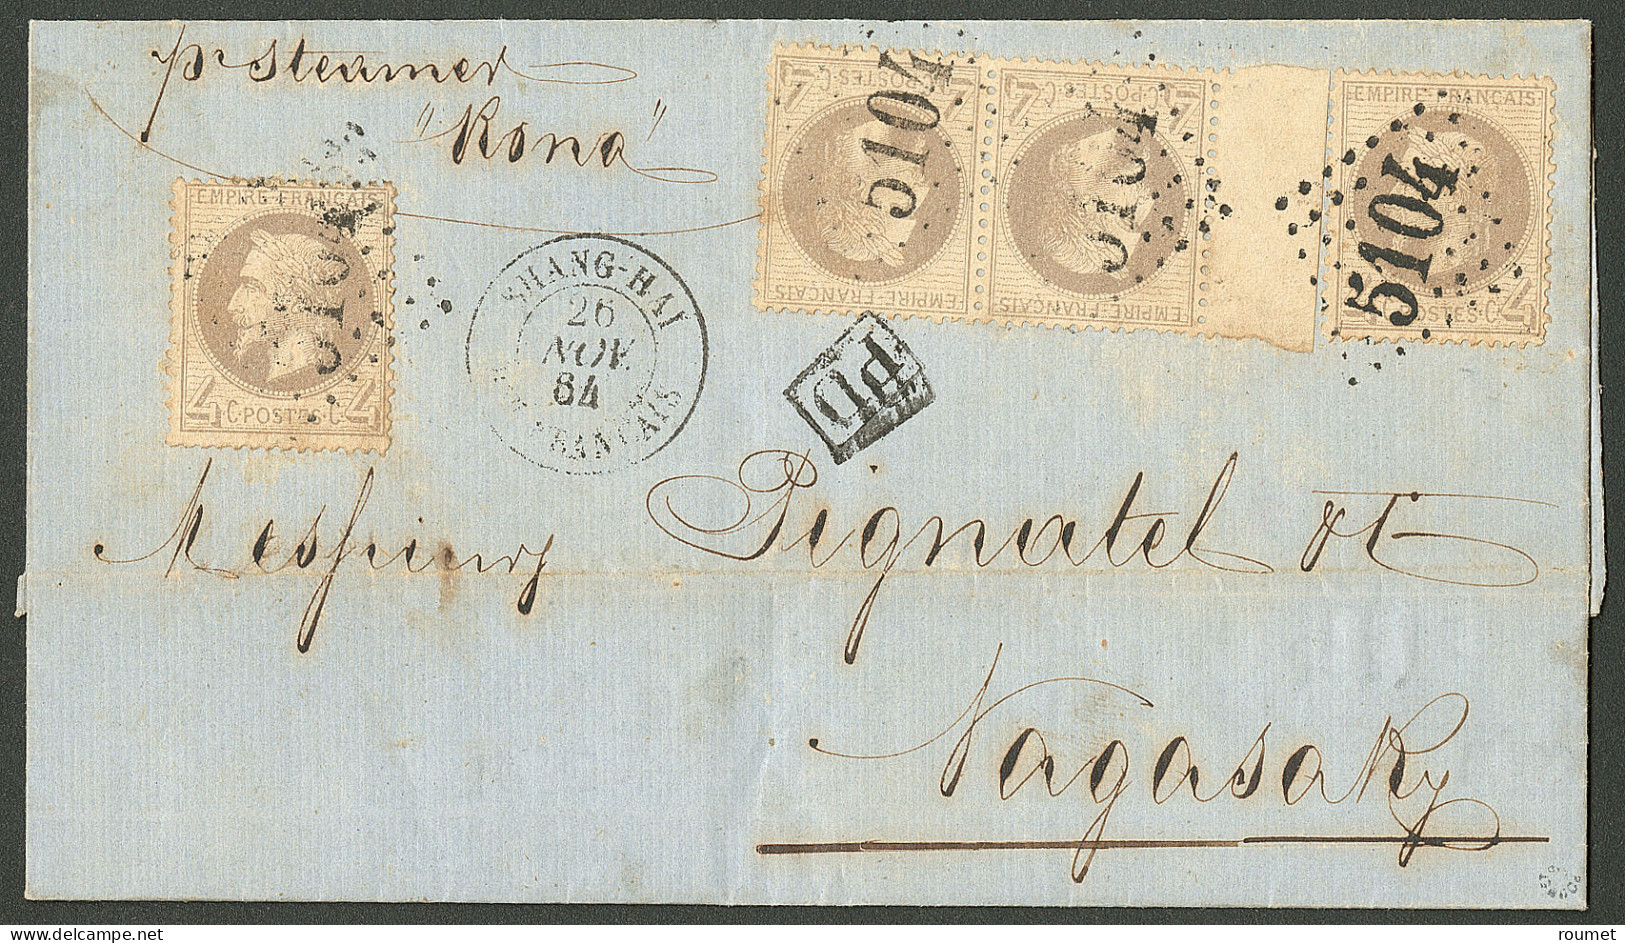 pr Steamer
"Rona"
EMPIRE·FRANÇAIS
4 C·POSTES·C 4
5104
4 C·POSTES·C 4
EMPIRE·FRANÇAIS
5104
4 C·POSTES·C 4
EMPIRE·FRANÇAIS
5104
EMPIRE·FRANÇAIS
POSTES·C 4
5104
SHANG-HAI
26
NOV.
64
FRANÇAIS
PD
Messieurs Pignatel & C
Nagasaky
delcampe.net
roumet